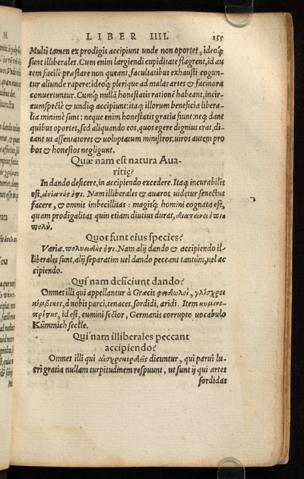 LIBER IIII. 155
Multi tamen ex prodigis accipiunt unde non oportet, ideoq́;
sunt illiberales. Cum enim largiendi cupiditate flagrent, id au
tem facilè præstare non queant, facultatibus exhaustis cogun-
tur aliunde rapere: ideoq́; plerique ad malas artes & facinora
convertuntur. Cumq́; nullā honestatis rationē habeant, incir-
cumspectè & undiq; accipiunt: itaq; illorum beneficia libera-
lia minimè sunt: neque enim honestatis gratia fiunt. neq; dant
quibus oportet, sed aliquando eos, quos egere dignius erat, di-
tant ut assentatores & voluptatum ministros: viros autem pro
bos & honestos negligunt.
Quæ nam est natura Aua-
ritiæ?
In dando deficere, in accipiendo excedere. Itaq; incurabilis
est, Nam illiberales & avaros videtur senectus
facere, & omnis imbecillitas: magisq́; homini cognata est,
quam prodigalitas quin etiam diutius durat,
πολύ.
Quot sunt eius species?
Variæ, Nam alij dando & accipiendo il-
liberales sunt, alij separatim vel dando peccant tantùm, vel ac
cipiendo.
Qui nam deficiunt dando?
Omnes illi qui appellantur à Græcis φειδωλοὶ, γλίσχροι
κίμβικες, à nobis parci, tenaces, sordidi, aridi. Item κυμινο-
πρίστης, id est, cumini sector, Germanis corrupto vocabulo
Kümmich secke.
Qui nam illiberales peccant
accipiendo?
Omnes illi qui αἰσχροκερδεῖς dicuntur, qui parui lu-
cri gratia nullam turpitudinem respuunt, ut sunt ij qui artes
sordidas